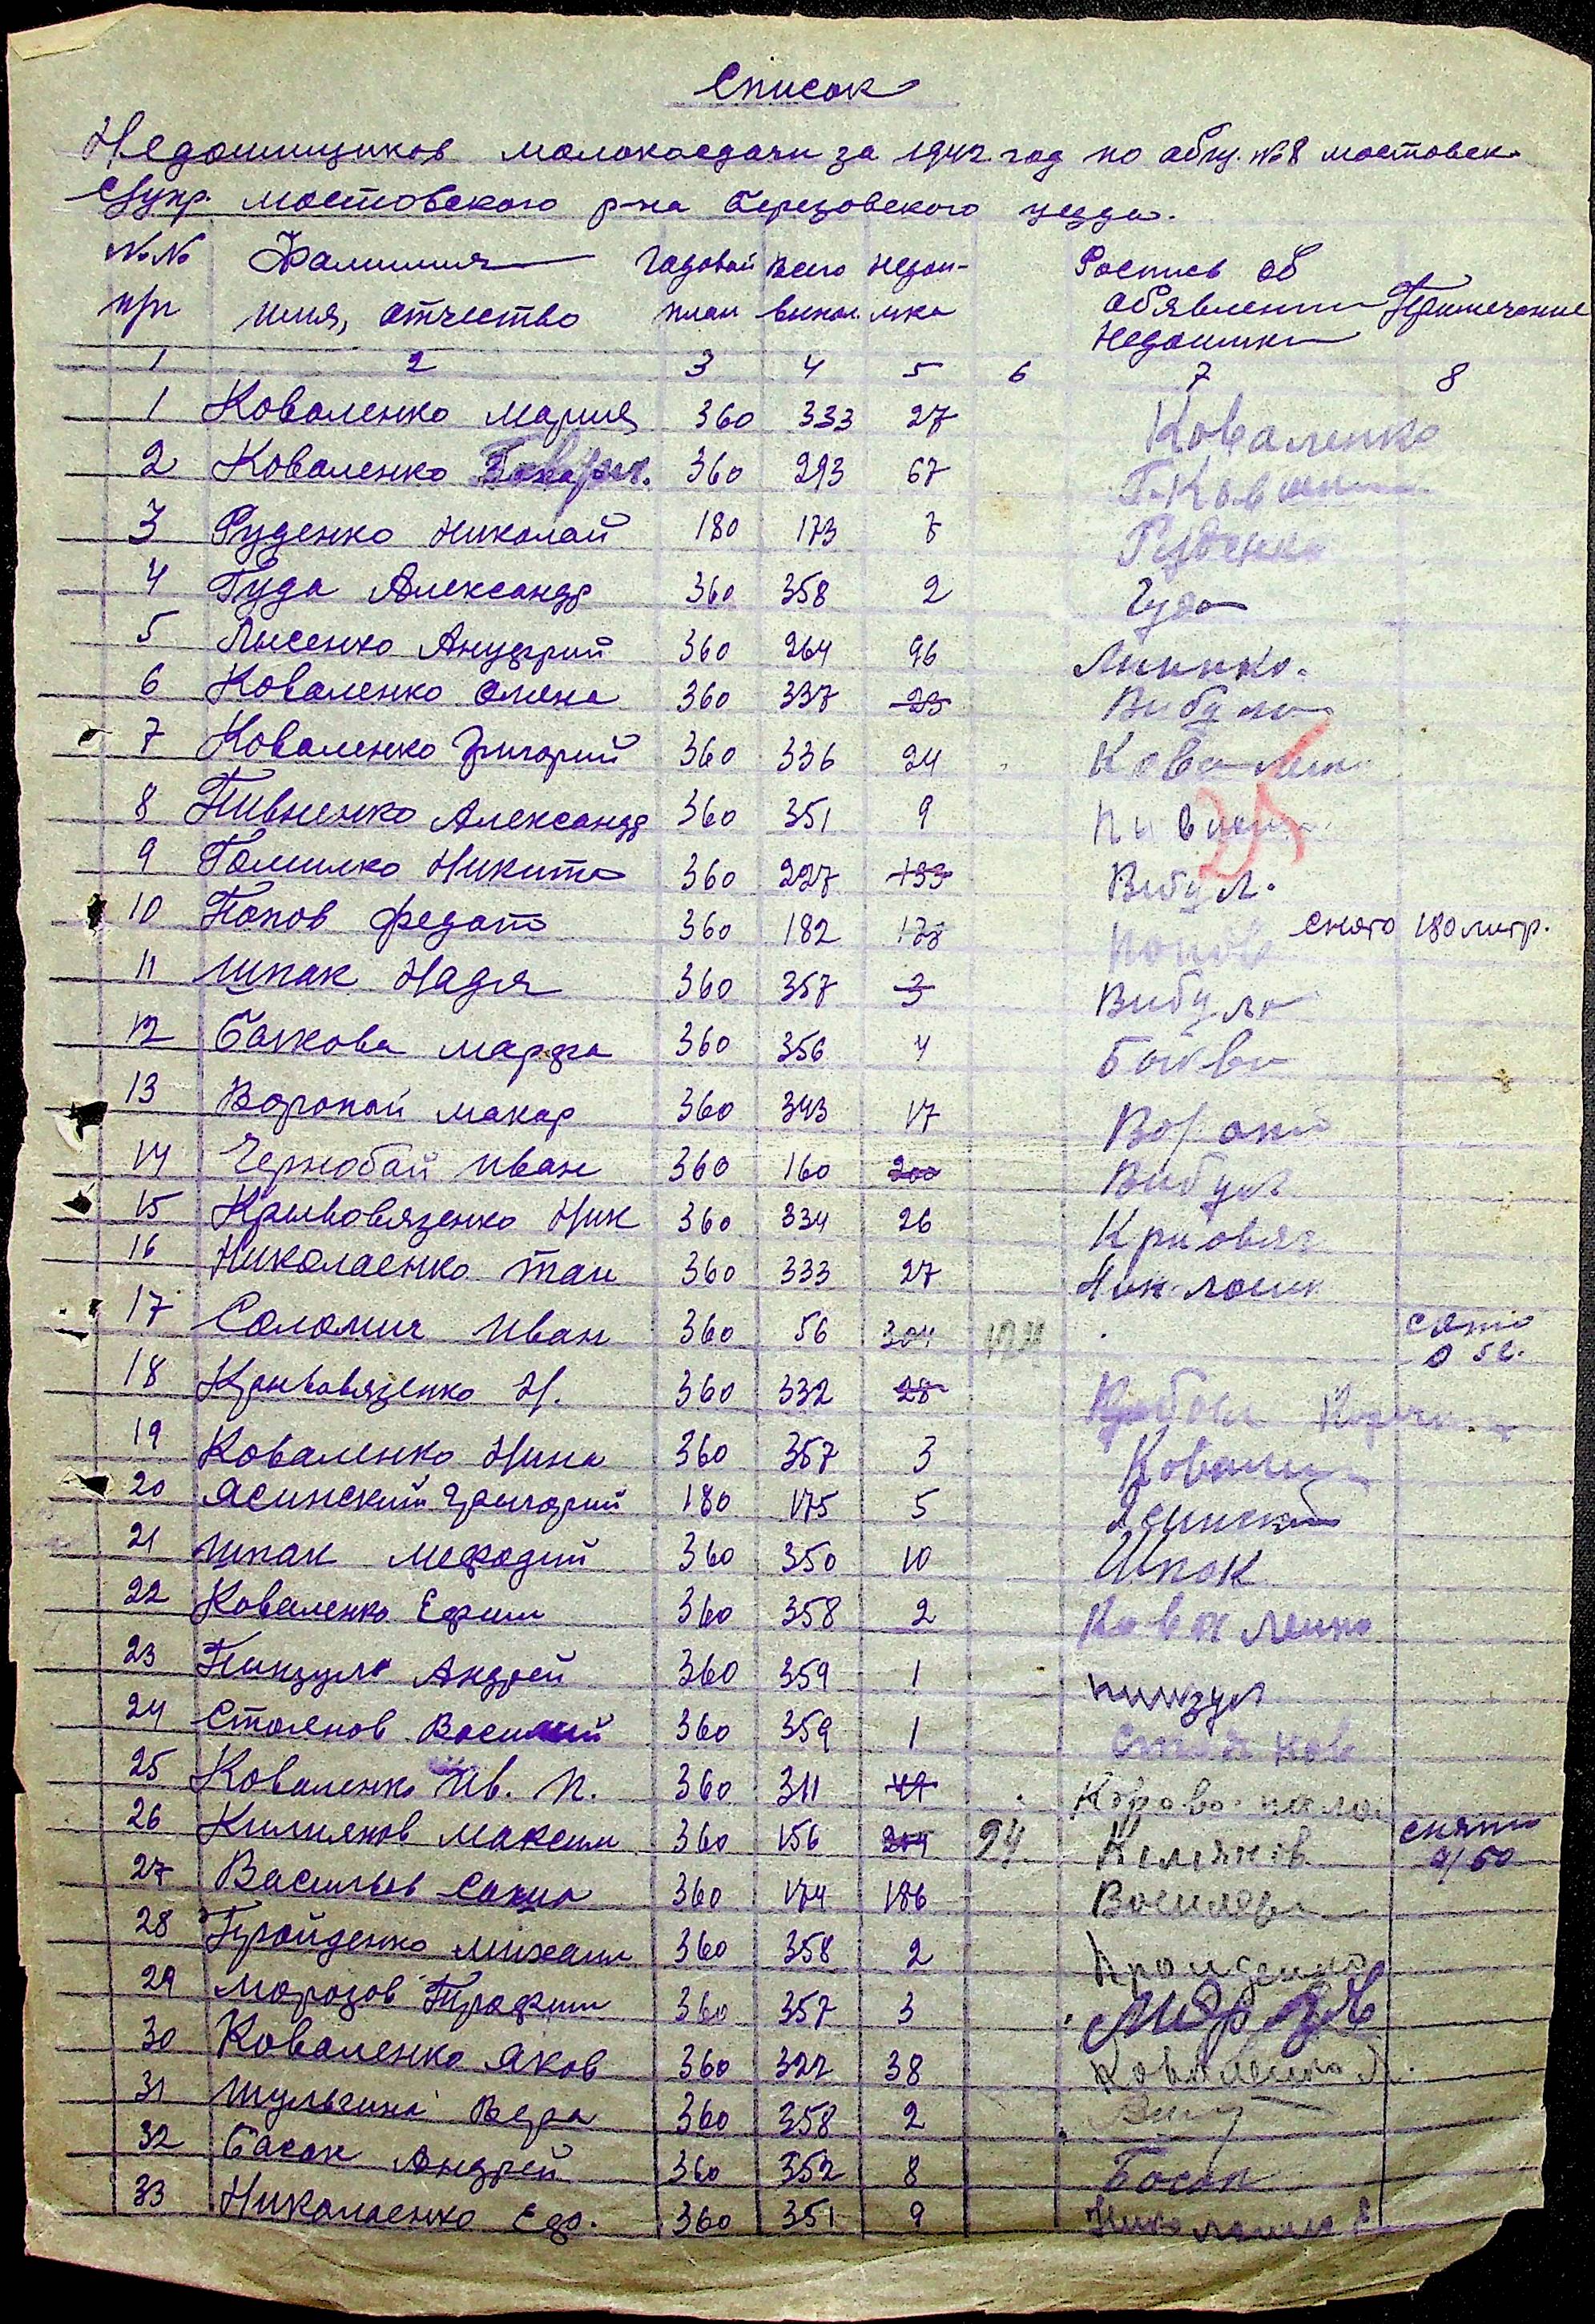 Список
Недоимщиков молокосдачи за 1942 год по общ. №8 мостовск.
мостовского р-на Березовского уезда.
№№ Фамилия Годовой Всего Недои- Роспись об
п/п имя, отчество план выпол. мка объявлении Примечание
недоимки
1 2 3 4 5 6 7 8
1 Коваленко Мария 360 333 27 Коваленко
2 Коваленко 360 293 67
3 Руденко Николай 180 173 7 Руденко
4 Гуда Александр 360 358 2 Гуда
5 Лысенко Андрий 360 264 96
6 Коваленко Олена 360 337 23 Вибула
7 Коваленко Григорий 360 336 24 Ковален
8 Пивненко Александр 360 351 9
9 Гомилко Никита 360 227 133 Вибул.
10 Попов Федот 360 182 178 Попов снято 180 литр.
11 Шпак Надя 360 357 3 Вибула
12 Бойкова Марфа 360 356 4
13 Воропай Макар 360 343 17
14 Чернобай Иван 360 160 200 Вибул
15 Кривовязенко Ник 360 334 26
16 Николаенко Тан 360 333 27
17 Соломич Иван 360 56 304 124
18 Кривовязенко Н. 360 332 28
19 Коваленко Нина 360 357 3
20 Ясинский Григорий 180 175 5 Ясинский
21 Шпак Мефодий 360 350 10 Шпак
22 Коваленко Ефим 360 358 2 Коваленко
23 Пинзул Андрей 360 359 1 пинзул
24 Стоянов Василий 360 359 1 Стоянов
25 Коваленко Ив. П. 360 311 49
26 Килиянов Максим 360 156 204 24 Килиянов снято
27 Васильев Сакил 360 174 186
28 Гройденко Михаил 360 358 2
29 Морозов Трофим 360 357 3 Морозов
30 Коваленко Яков 360 322 38 Коваленко Я.
31 Шульгина Вера 360 358 2
32 Босак Андрей 360 352 8 Босак
33 Николаенко Едо. 360 351 9